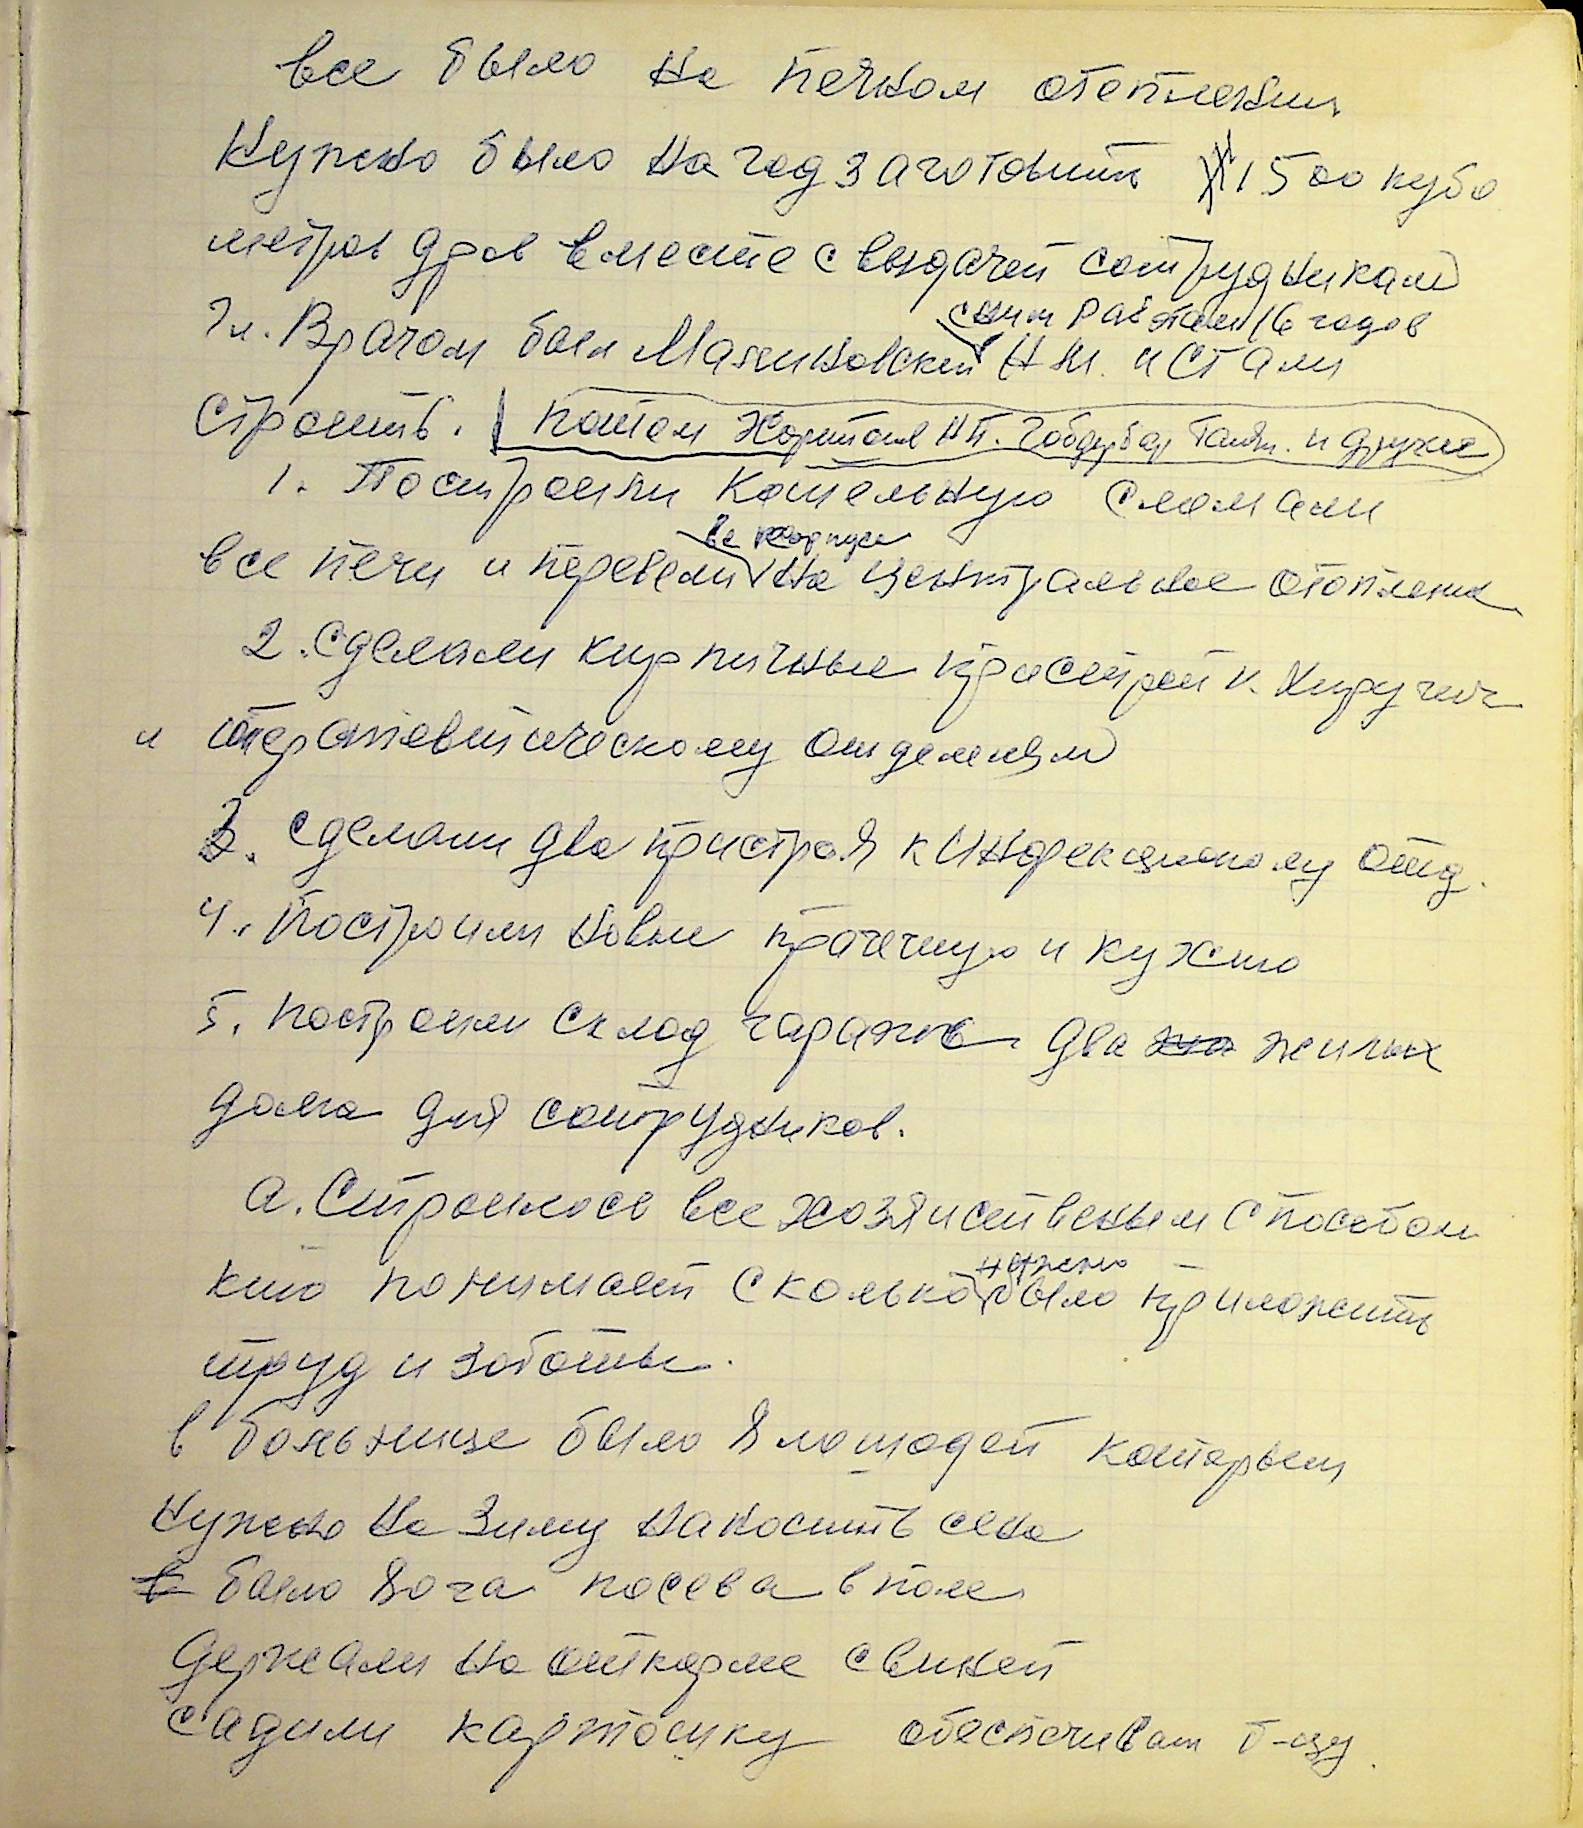 все было на печном отоплении
Нужно было на год заготовить 1500 кубо
метров дров вместе с выдачей сотрудникам
с ним работали 16 годов
Гл. Врачом был Малиновский Н М. и стали
строить. Потом Харитонов НП. и другие
1. Построили котельную сломали
все корпуса
все печи и перевели на центральное отопление
2. Сделали кирпичные пристрой к. Хирургич
и терапевтическому отделениям
3. Сделали два пристроя к Инфекционому отд.
4. Построили новые прачечную и кухню
5. Построили склад гаражи два жилых
дома для сотрудников.
а. Строилось все хозяиственым способом
нужно
кто понимает сколько было приложить
труд и заботы.
в больнице было 8 лошадей которым
Нужно на зиму накосить сена
было 8 о га посева в поле
Держали на откорме свиней
садили картошку обеспечиват б-цу.